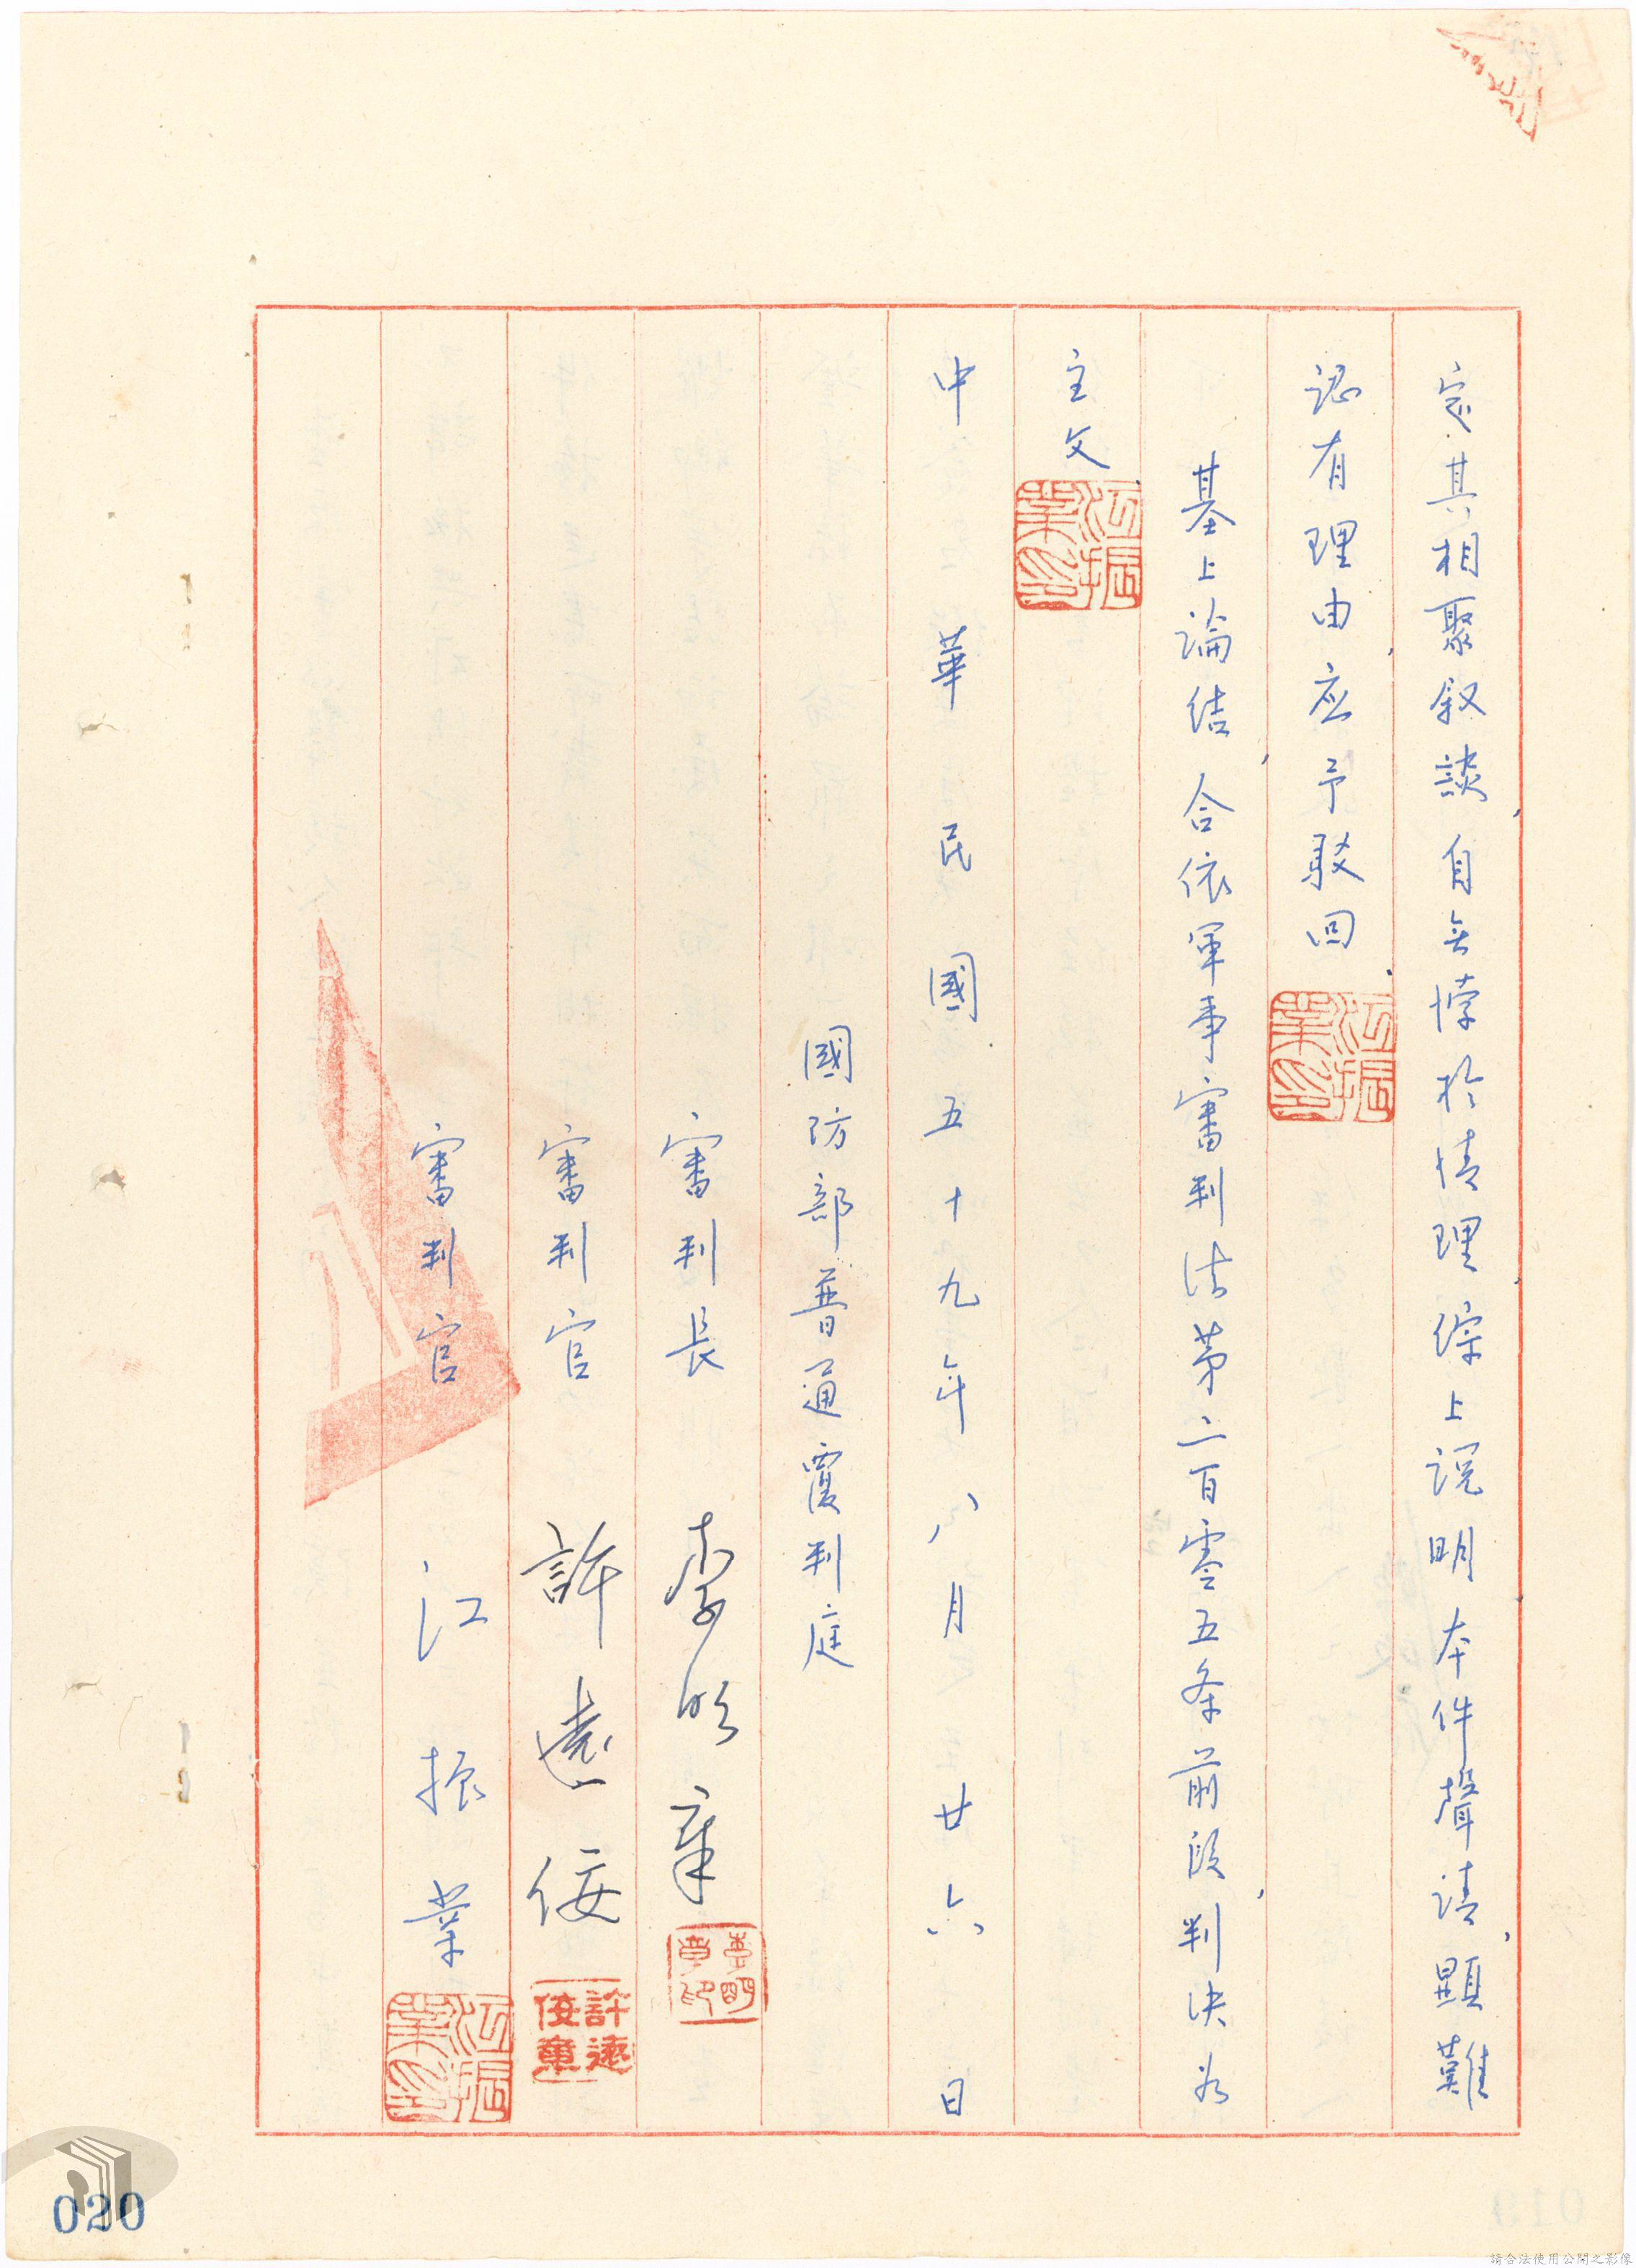 容其相聚叙談，自無悖於情理，綜上說明，本件聲請，顯難
認有理由，应予駁回。
江振業印
基上論結，合依軍事審判法第二百零五条前段，判決为
主文。
江振業印
中華民國五十九年八月廿六日
國防部普通覆判庭
審判長 李明章
李明章印
審判官 許遠佞
許遠佞章
審判官 江振業
江振業印
020
請合法使用公開之影像